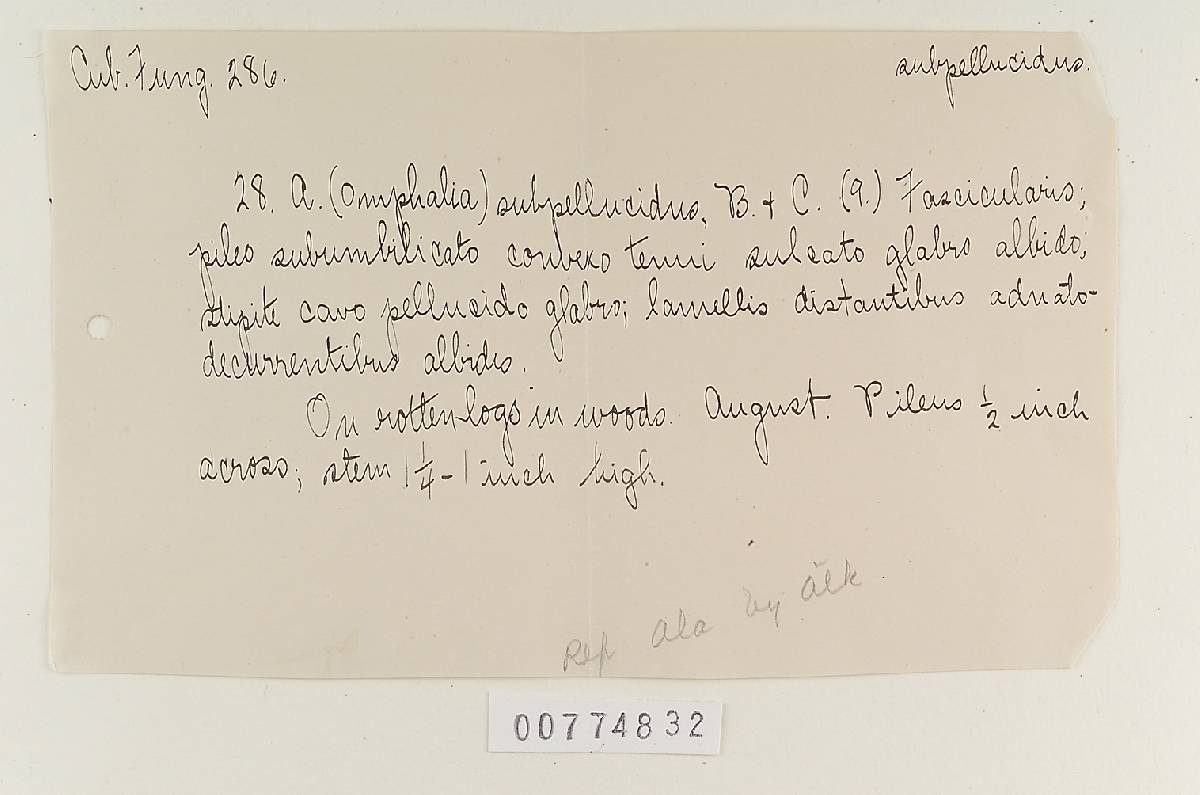 Cub. Fung. 286.
subpellucidus.
28. A. (Omphalia) subpellucidus, B. + C. (9.) Fascicularis;
pileo subumbilicato convexo tenui sulcato glabro albido;
stipite cavo pellucido glabro; lamellis distantibus adnato-
decurrentibus albidis.
On rotten logs in woods. August. Pileus 1/2 inch
across; stem 1 1/4 - 1 inch high.
Rep Ala by
00774832